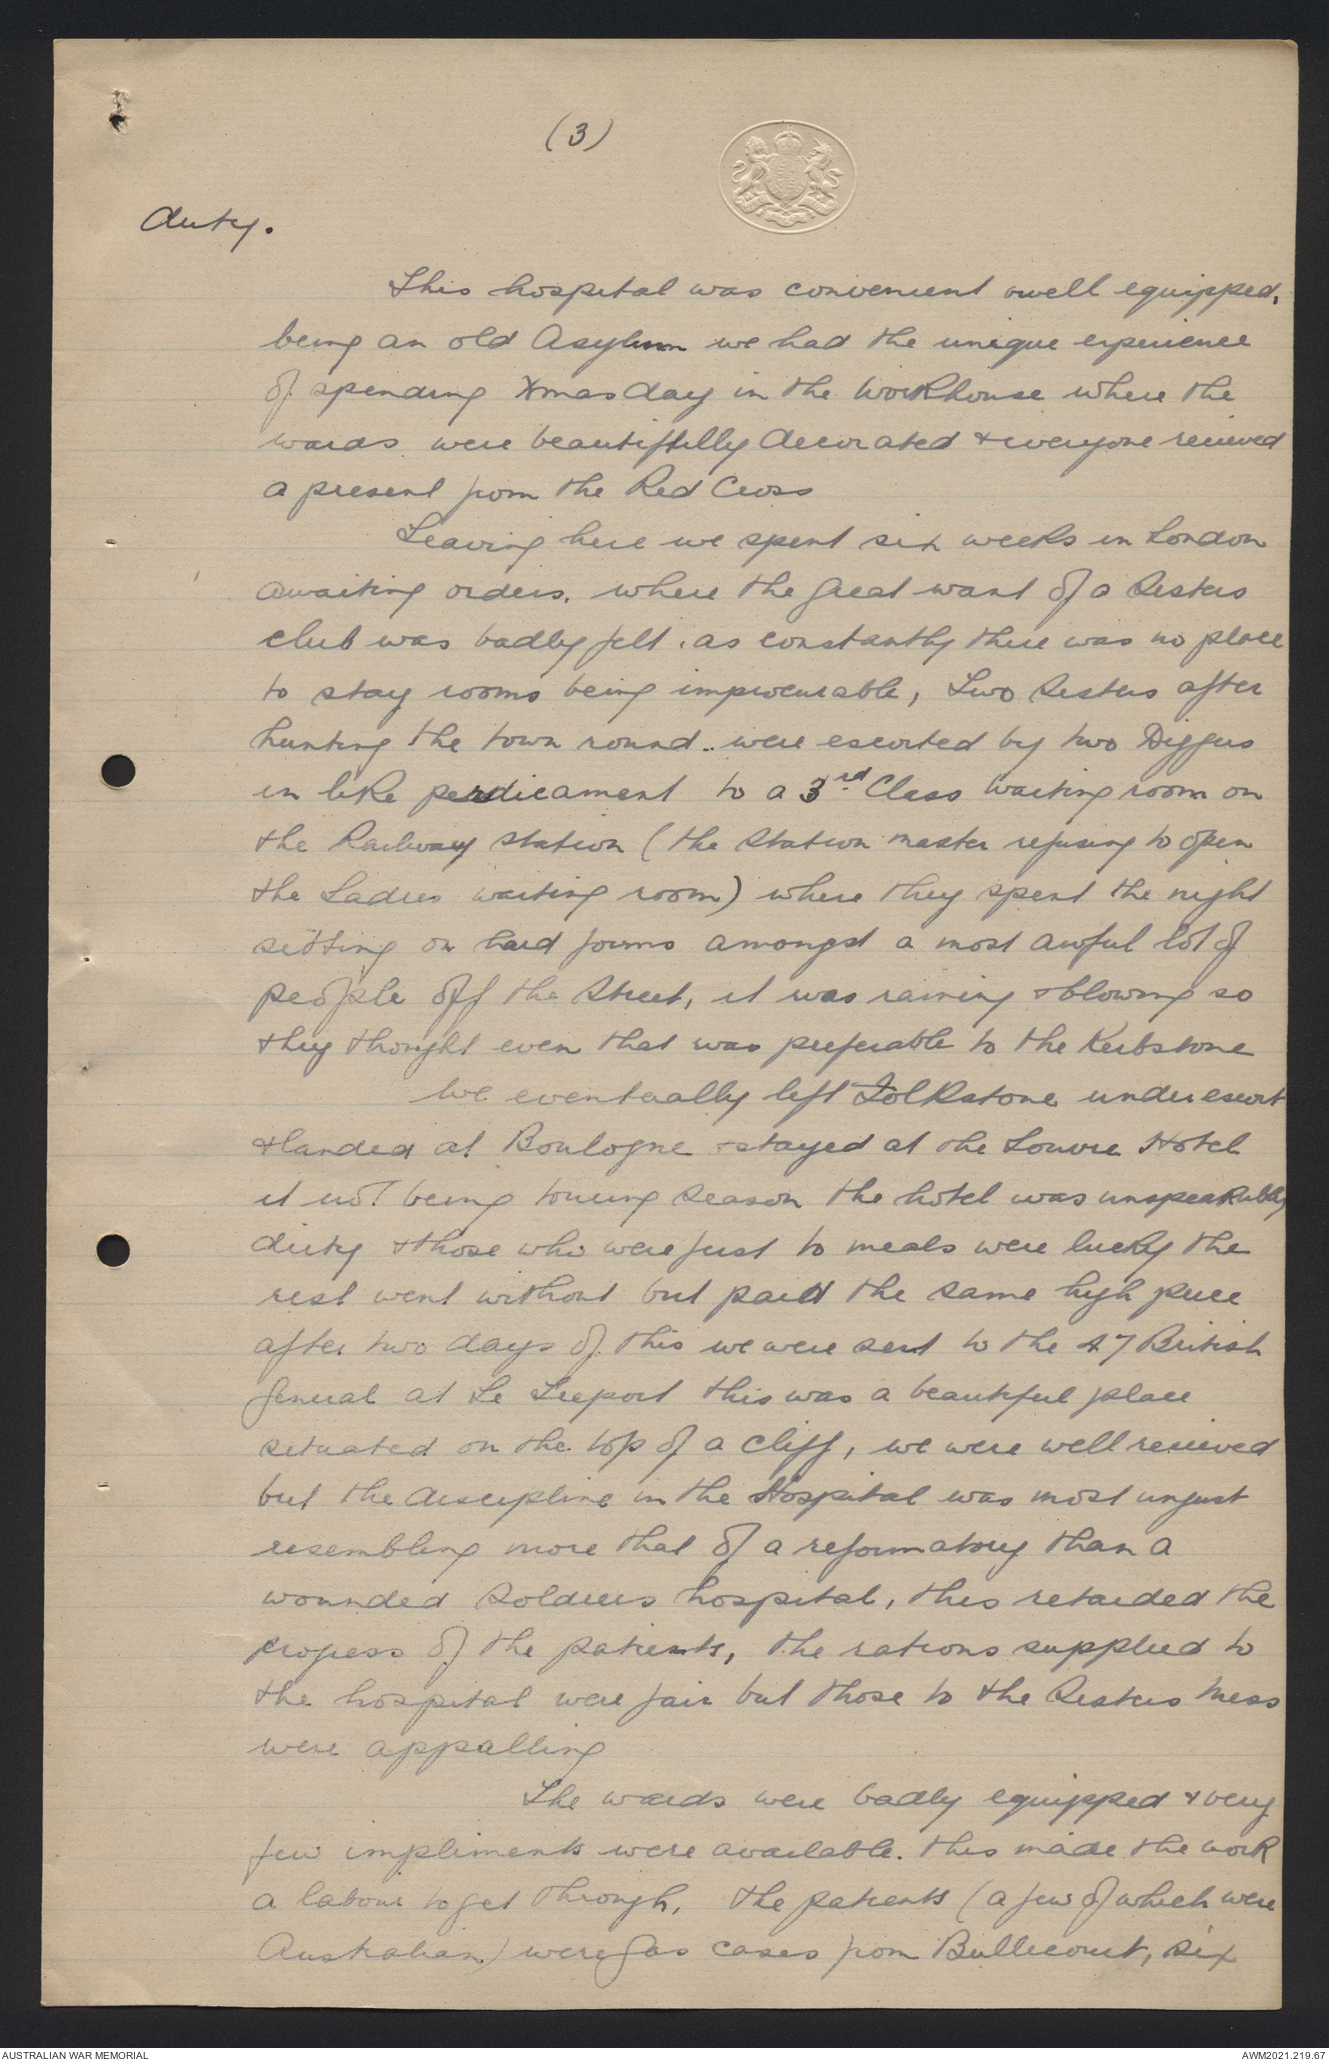 (3)
duty.
This hospital was convenient & well equipped,
being an old Asylum we had the unique experience
of spending Xmas day in the Workhouse where the
wards were beautifully decorated & everyone recieved
a present from the Red Cross
Leaving here we spent six weeks in London
awaiting orders. where the great want of a Sisters
club was badly felt. as constantly there was no place
to stay rooms being improcurable, Two Sisters after
hunting the town round.. were escorted by two Diggers
in like perdicament to a 3rd Class waiting room on
the Railway station (the Station master refusing to open
the Ladies waiting room) where they spent the night
sitting on hard forms amongst a most awful lot of
people off the Street, it was raining & blowing so
they thought even that was preferable to the Kerbstone
We eventually left Folkstone under escort
& landed at Boulogne & stayed at the Louvre Hotel
it not being touring Season the hotel was unspeakably
dirty & those who were first to meals were lucky the
rest went without but paid the same high price
after two days of this we were sent to the 47 British
General at Le Treport this was a beautiful place
situated on the top of a cliff, we were well recieved
but the discipline in the Hospital was most unjust
resembling more that of a reformatory than a
wounded Soldiers hospital, this retarded the
progess of the patients, the rations supplied to
the hospital were fair but those to the Sisters Mess
were appalling
The wards were badly equipped & very
few impliments were available. this made the work
a labour to get through, the patients (a few of which were
Australian) were Gas cases from Bullecourt, six
AUSTRALIAN WAR MEMORIAL
AWM2021.219.67